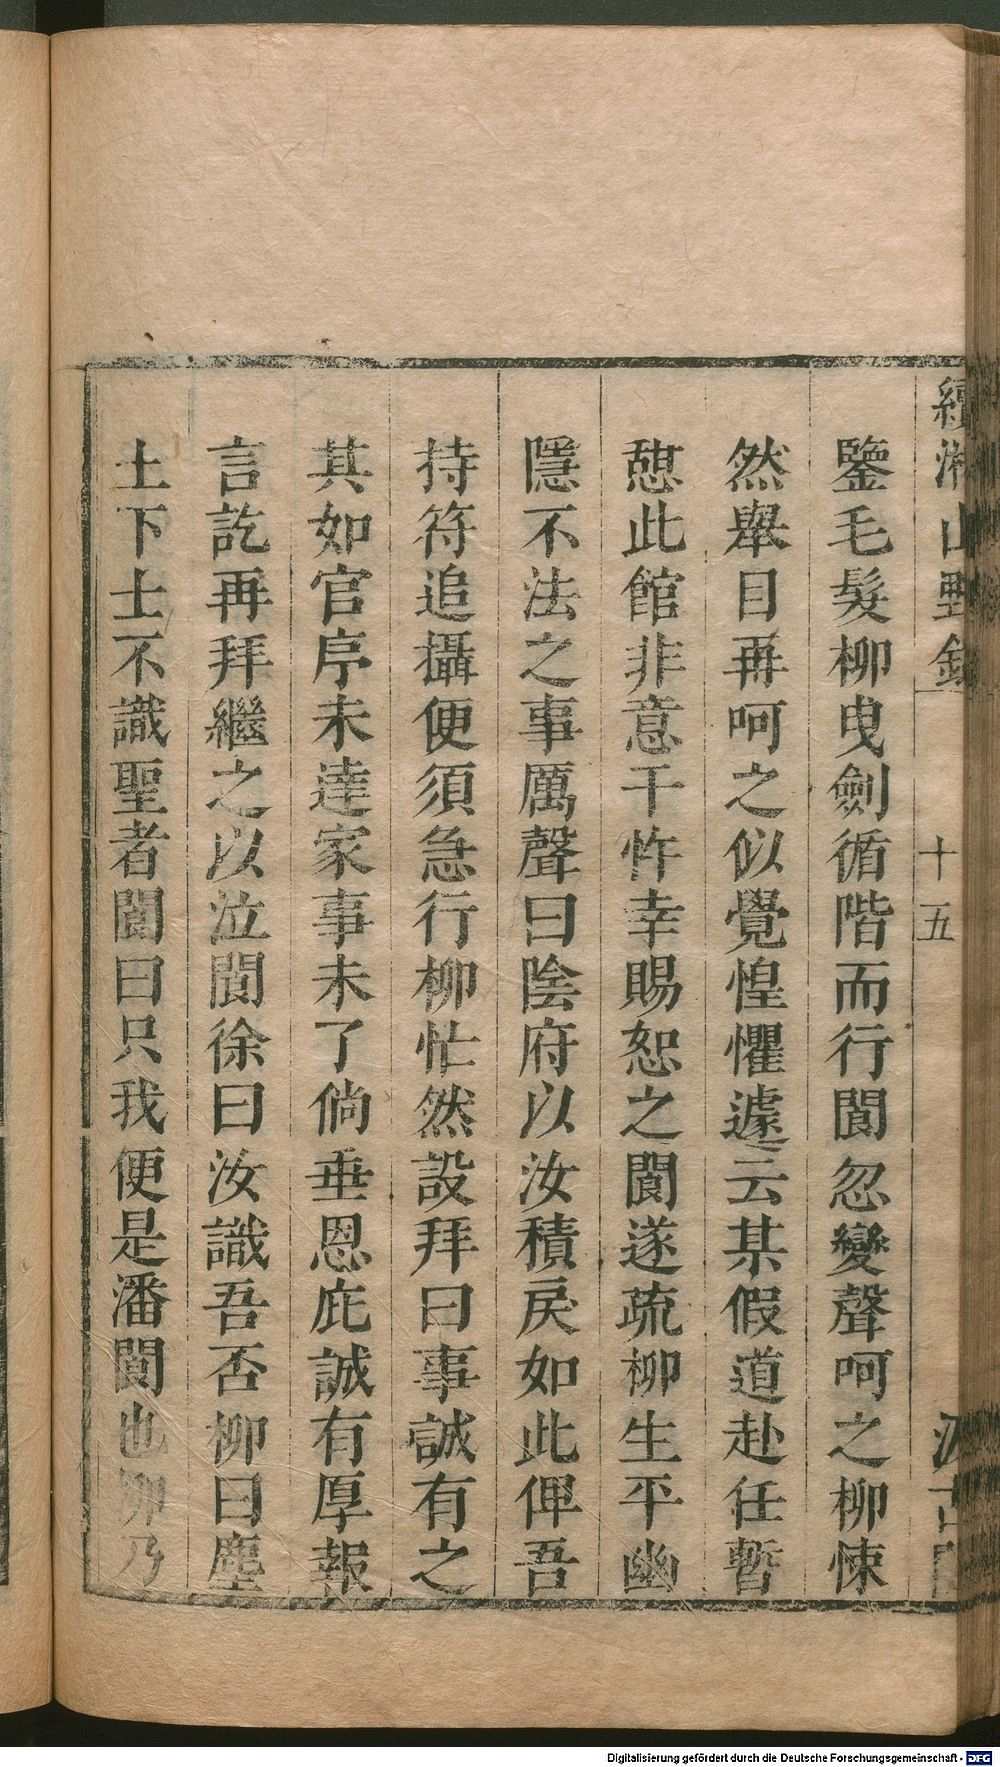 續湘山野錄 十五 汲古閣
鑒毛髮柳曳劍循階而行閬忽變聲呵之柳悚
然舉目再呵之似覺惶懼遽云某假道赴任暫
憇此館非意干忤幸賜恕之閬遂疏柳生平幽
隱不法之事厲聲曰陰府以汝積戾如此俾吾
持符追攝便須急行柳忙然設拜曰事誠有之
其如官序未達家事未了倘垂恩庇誠有厚報
言訖再拜繼之以泣閬徐曰汝識吾否柳曰塵
土下士不識聖者閬曰只我便是潘閬也柳乃
Digitalisierung gefördert durch die Deutsche Forschungsgemeinschaft - DFG